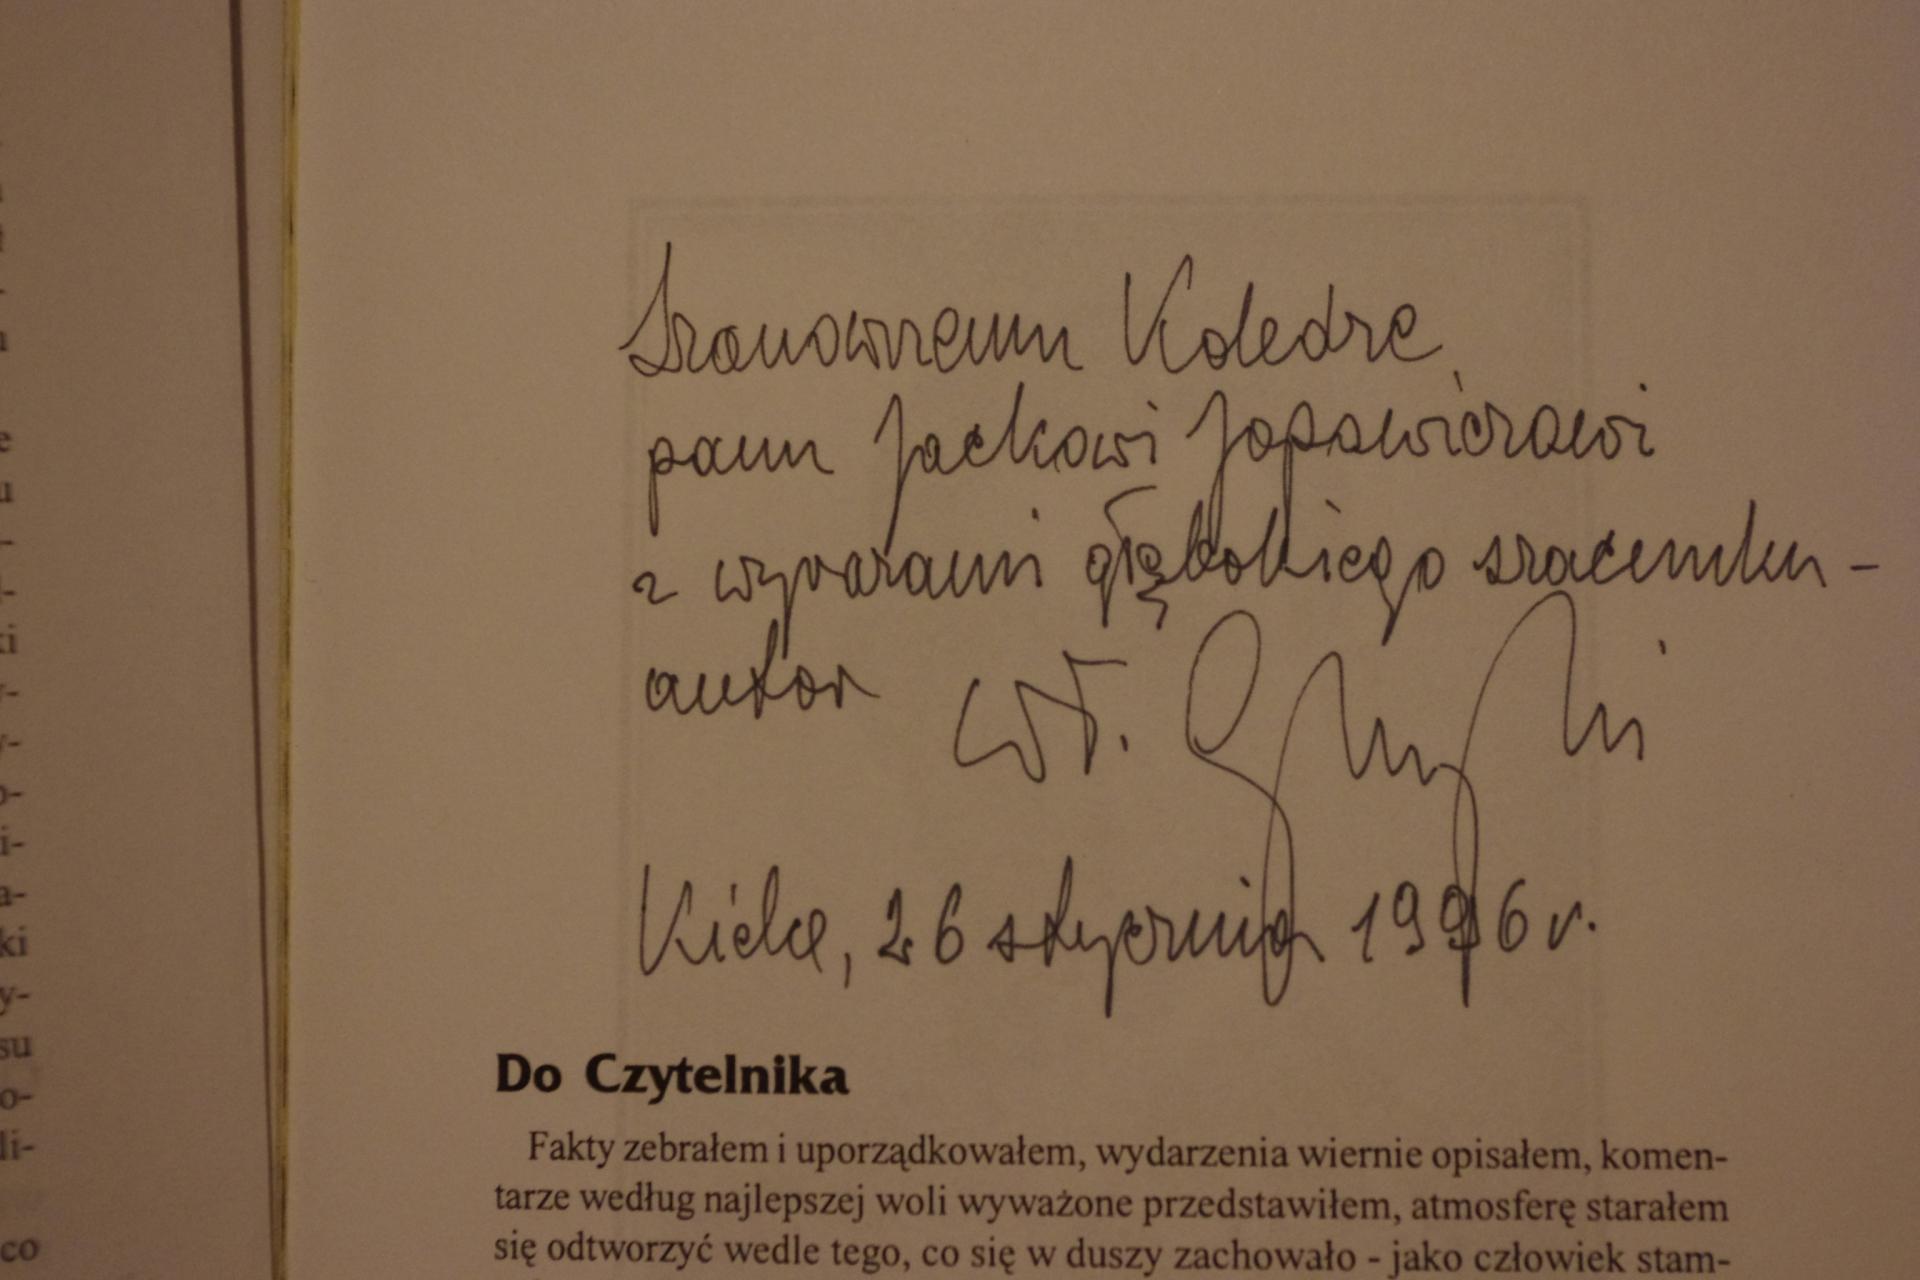 Szanownemu Koledze
panu Jackowi
z wyrazami głębokiego szacunku -
autor Wł.
Kielce, 26 stycznia 1996 r.
Do Czytelnika
Fakty zebrałem i uporządkowałem, wydarzenia wiernie opisałem, komen-
tarze według najlepszej woli wyważone przedstawiłem, atmosferę starałem
się odtworzyć wedle tego, co się w duszy zachowało - jako człowiek stam-